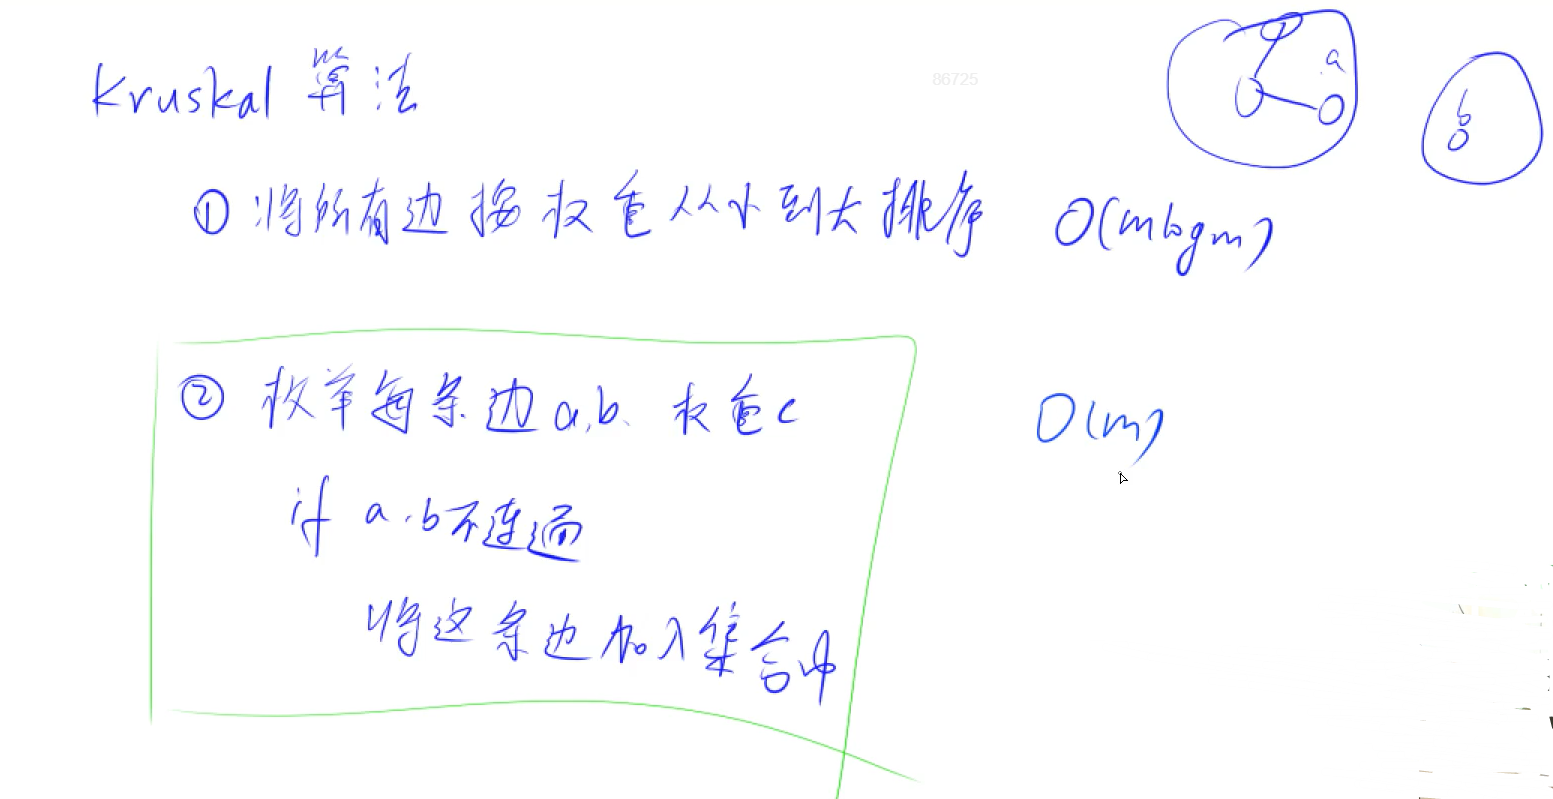 Kruskal 算法
86725
a
b
① 将所有边按权重从小到大排序 O(mlogm)
② 枚举每条边a,b、权重c O(m)
if a,b不连通
将这条边加入集合中